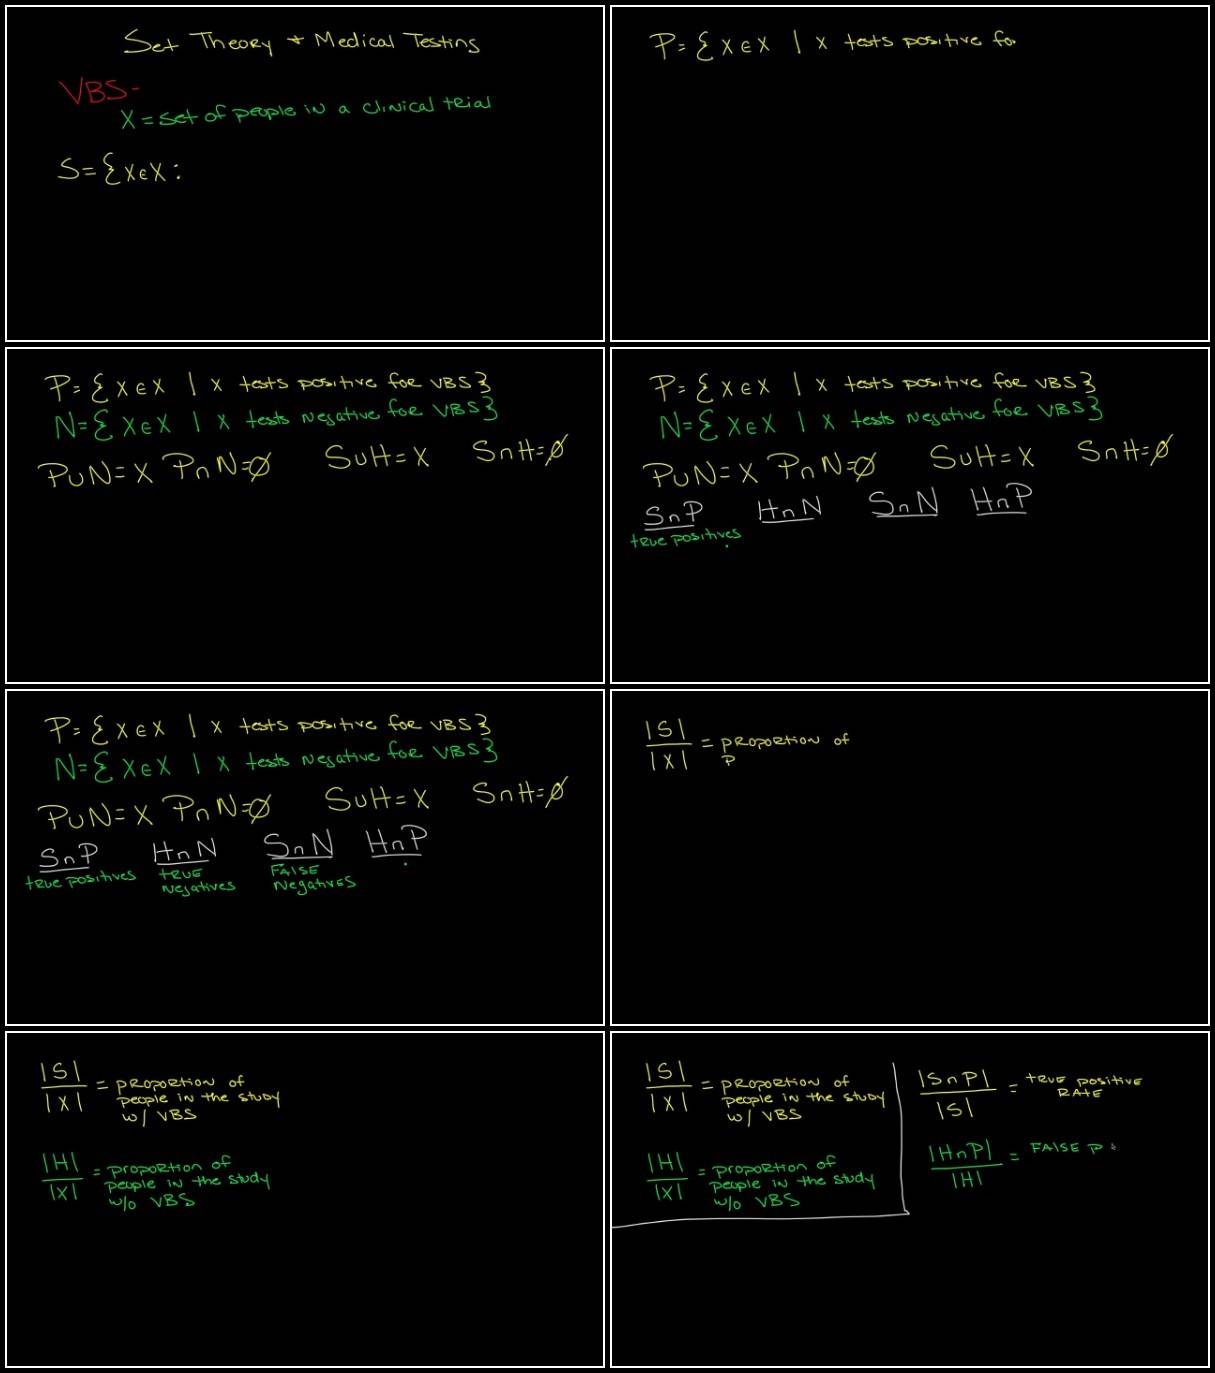 Set Theory + Medical Testing
VBS-
X = set of people in a clinical trial
S={x∈X :
P={x∈X | x tests positive fo
P={x∈X | x tests positive for VBS}
N={x∈X | x tests negative for VBS}
P∪N=X P∩N=∅ S∪H=X S∩H=∅
P={x∈X | x tests positive for VBS}
N={x∈X | x tests negative for VBS}
P∪N=X P∩N=∅ S∪H=X S∩H=∅
S∩P H∩N S∩N H∩P
true positives
P={x∈X | x tests positive for VBS}
N={x∈X | x tests negative for VBS}
P∪N=X P∩N=∅ S∪H=X S∩H=∅
S∩P H∩N S∩N H∩P
true positives TRUE Negatives FALSE Negatives
|S|/|X| = proportion of
P
|S|/|X| = proportion of
people in the study
w/ VBS
|H|/|X| = proportion of
people in the study
w/o VBS
|S|/|X| = proportion of
people in the study
w/ VBS
|H|/|X| = proportion of
people in the study
w/o VBS
|S∩P|/|S| = TRUE POSITIVE
RATE
|H∩P|/|H| = FALSE P